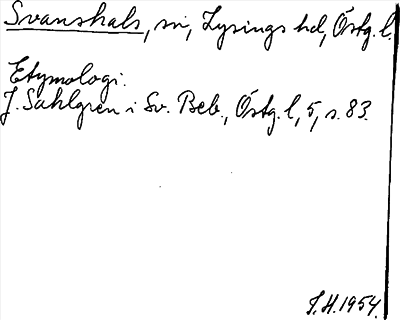 Svanshals, sn, Lysings hd, Östg. l.
Etymologi.
J. Sahlgren i Sv. Beb., Östg. l, 5, s. 83.
S.H. 1954.